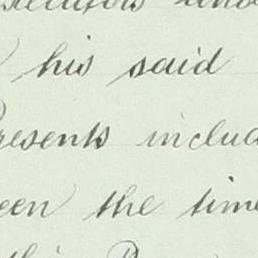 his said
resents includ
een the time